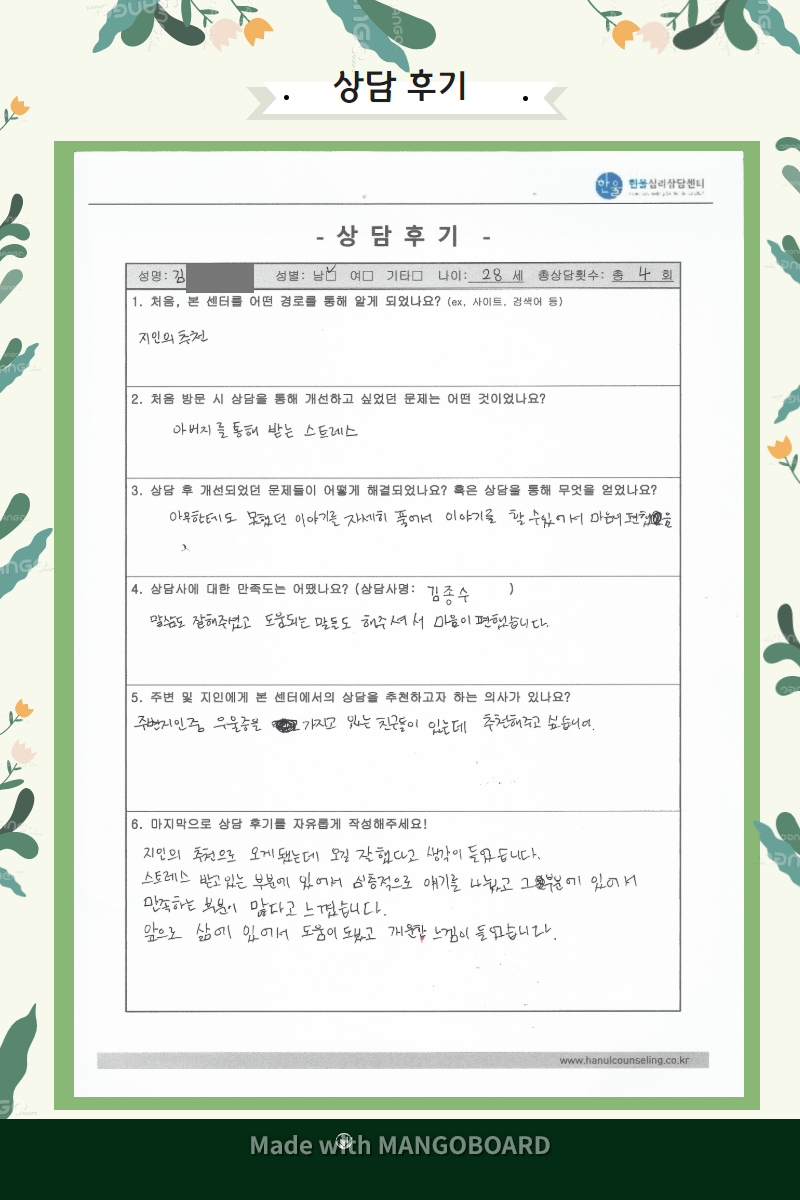 상담 후기
한울심리상담센터
- 상 담 후 기 -
성명: 김 성별: 남☑ 여☐ 기타☐ 나이: 28 세 총상담횟수: 총 4 회
1. 처음, 본 센터를 어떤 경로를 통해 알게 되었나요? (ex, 사이트, 검색어 등)
지인의 추천
2. 처음 방문 시 상담을 통해 개선하고 싶었던 문제는 어떤 것이었나요?
아버지를 통해 받는 스트레스
3. 상담 후 개선되었던 문제들이 어떻게 해결되었나요? 혹은 상담을 통해 무엇을 얻었나요?
아무한테도 못했던 이야기를 자세히 풀어서 이야기를 할 수 있어서 마음이
4. 상담사에 대한 만족도는 어땠나요? (상담사명: 김종수 )
말씀도 잘해주셨고 도움되는 말들도 해주셔서 마음이 편했습니다.
5. 주변 및 지인에게 본 센터에서의 상담을 추천하고자 하는 의사가 있나요?
주변지인중 우울증을 가지고 있는 친구들이 있는데 추천해주고 싶습니다.
6. 마지막으로 상담 후기를 자유롭게 작성해주세요!
지인의 추천으로 오게됐는데 오길 잘했다고 생각이 들었습니다.
스트레스 받고있는 부분에 있어서 심층적으로 얘기를 나눴고 그 부분에 있어서
만족하는 부분이 많다고 느꼈습니다.
앞으로 삶에 있어서 도움이 도고 개운한 느낌이 들었습니다.
www.hanulcounseling.co.kr
Made with MANGOBOARD